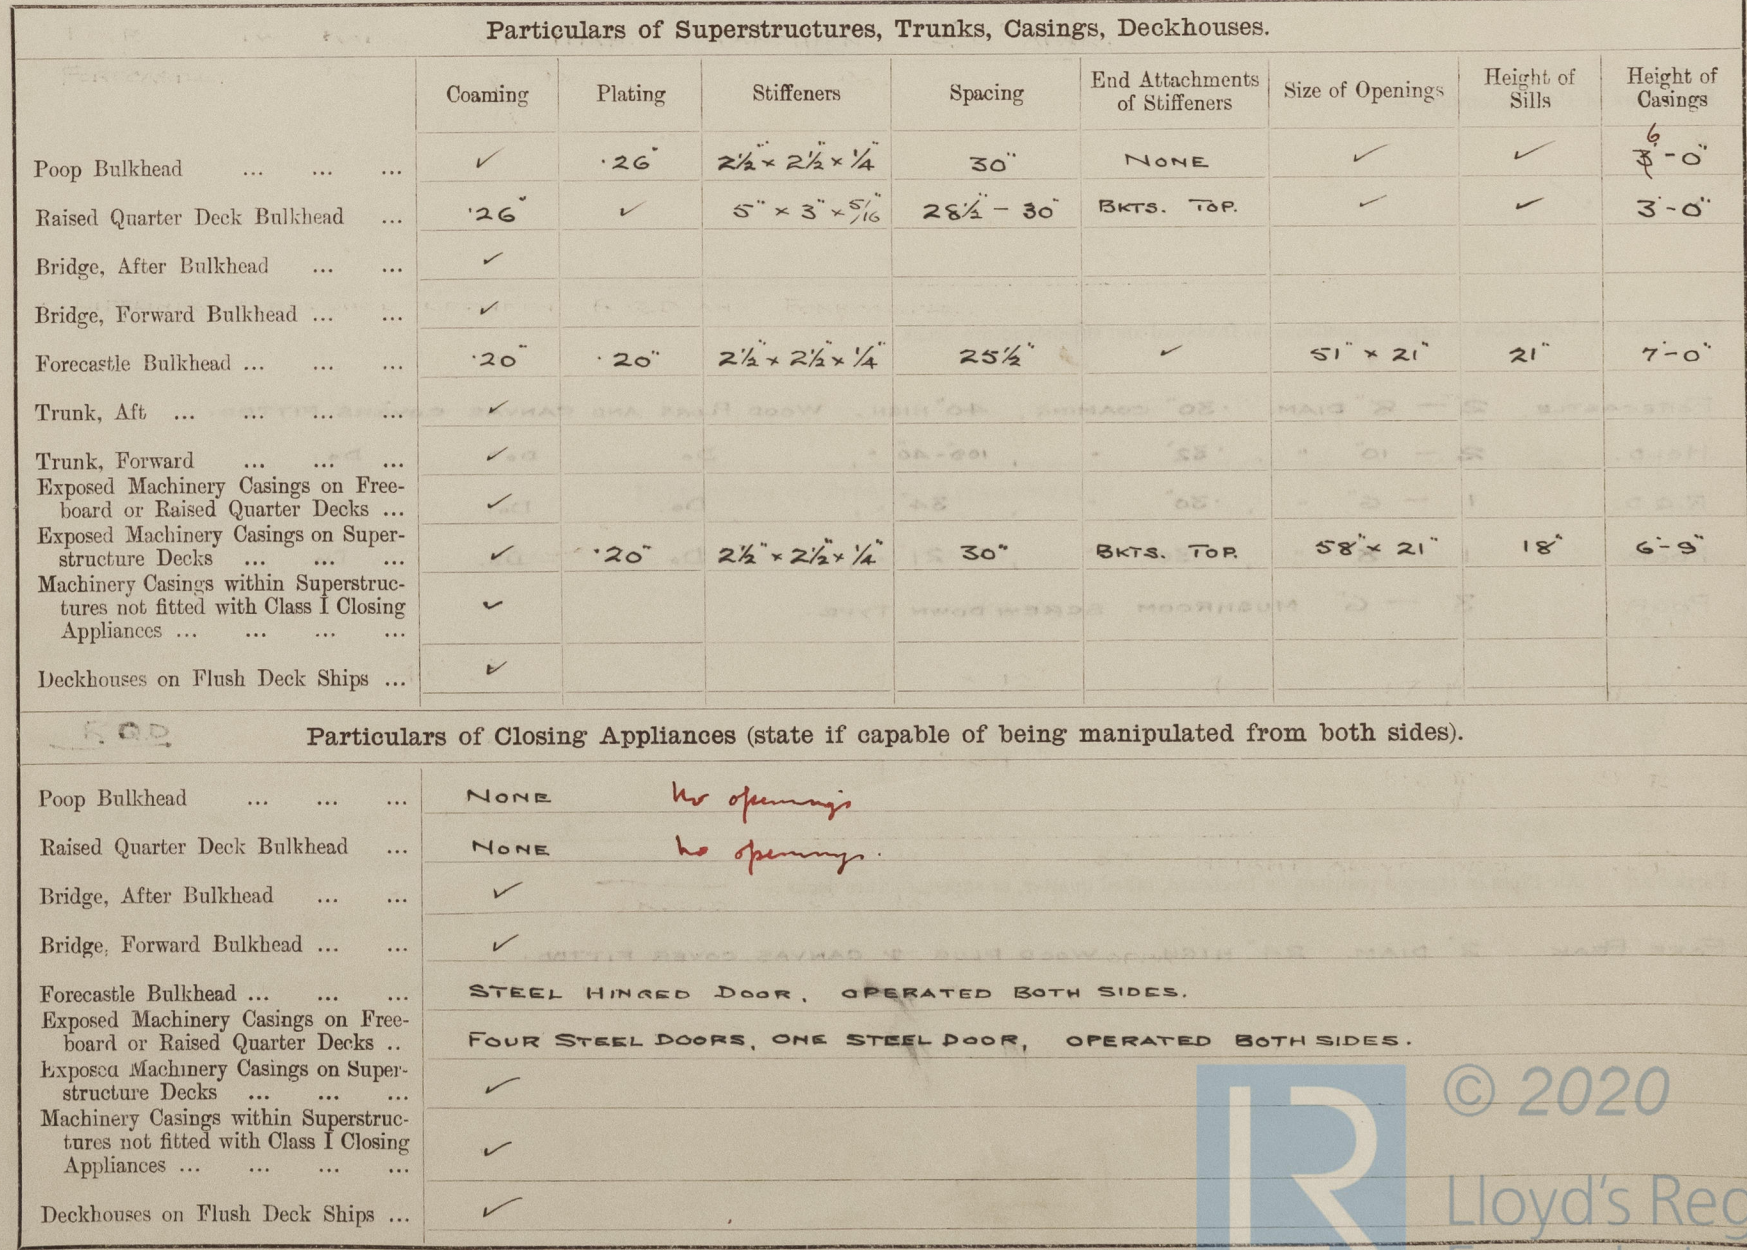 Particulars of Superstructures, Trunks, Casings, Deckhouses.
Coaming Plating Stiffeners Spacing End Attachments of Stiffeners Size of Openings Height of Sills Height of Casings
Poop Bulkhead ... ... ... ✓ ·26" 2½" × 2½" × ¼" 30" NONE ✓ ✓ 6 3'-0"
Raised Quarter Deck Bulkhead ... ·26" ✓ 5" × 3" × 5/16" 28½" - 30" BKTS. TOP. ✓ ✓ 3'-0"
Bridge, After Bulkhead ... ... ✓
Bridge, Forward Bulkhead ... ... ✓
Forecastle Bulkhead ... ... ... ·20" ·20" 2½" × 2½" × ¼" 25½" ✓ 51" × 21" 21" 7'-0"
Trunk, Aft ... ... ... ... ✓
Trunk, Forward ... ... ... ✓
Exposed Machinery Casings on Free-
board or Raised Quarter Decks ... ✓
Exposed Machinery Casings on Super-
structure Decks ... ... ... ✓ ·20" 2½" × 2½" × ¼" 30" BKTS. TOP. 58" × 21" 18" 6'-9"
Machinery Casings within Superstruc-
tures not fitted with Class I Closing ✓
Appliances ... ... ... ...
Deckhouses on Flush Deck Ships ... ✓
Particulars of Closing Appliances (state if capable of being manipulated from both sides).
Poop Bulkhead ... ... ... NONE No openings
Raised Quarter Deck Bulkhead ... NONE No openings.
Bridge, After Bulkhead ... ... ✓
Bridge, Forward Bulkhead ... ... ✓
Forecastle Bulkhead ... ... ... STEEL HINGED DOOR, OPERATED BOTH SIDES.
Exposed Machinery Casings on Free-
board or Raised Quarter Decks .. FOUR STEEL DOORS, ONE STEEL DOOR, OPERATED BOTH SIDES.
Exposed Machinery Casings on Super-
structure Decks ... ... ... ✓
Machinery Casings within Superstruc-
tures not fitted with Class I Closing ✓
Appliances ... ... ... ...
Deckhouses on Flush Deck Ships ... ✓
© 2020
Lloyd's Reg